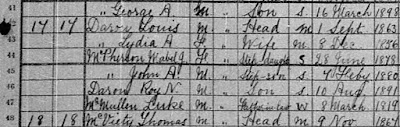 41 " George A. M. " Son s 16 March 1898
42 17 17 Darry Louis M. " Head m 1 Sept 1863
43 " Lydia A. F. " Wife m 8 Dec 1856
44 McPherson Mabel J. F. " Step-daught s 28 June 1878
" John A. M. " Step-son s 4 Feby 1880
Darow Roy N. M. " Son s 10 Aug 1891
McMullen Luke M. " W 8 March 1819
48 18 18 McVicty Thomas M. " Head m 9 Nov 1867